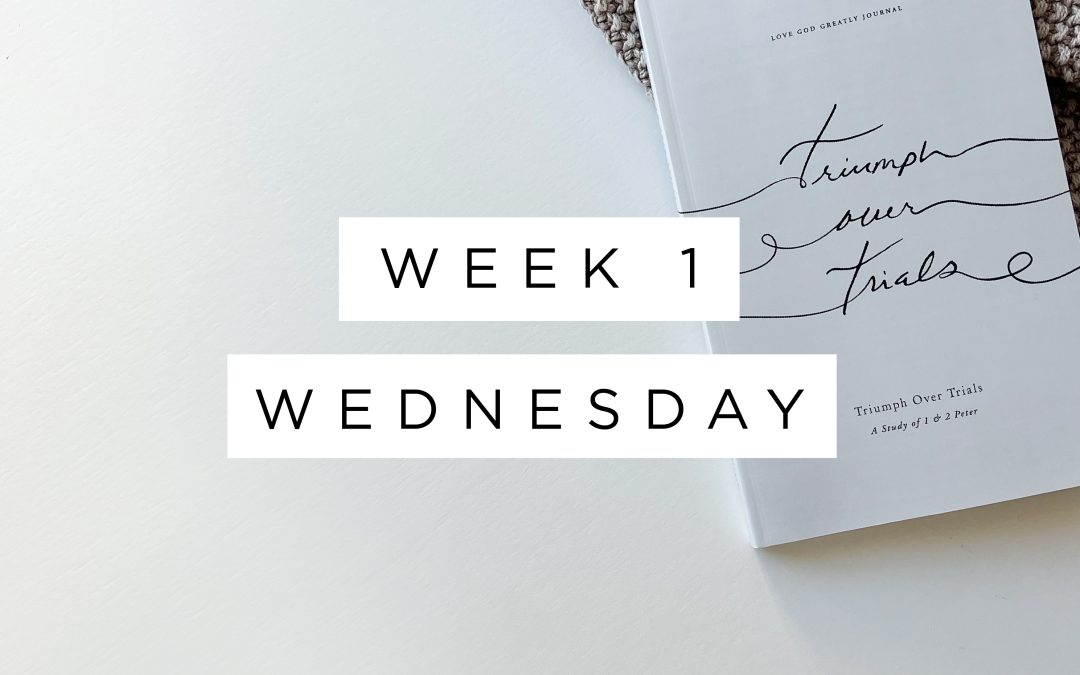 LOVE GOD GREATLY JOURNAL
Triumph
over
Trials
WEEK 1
WEDNESDAY
Triumph Over Trials
A Study of 1 & 2 Peter